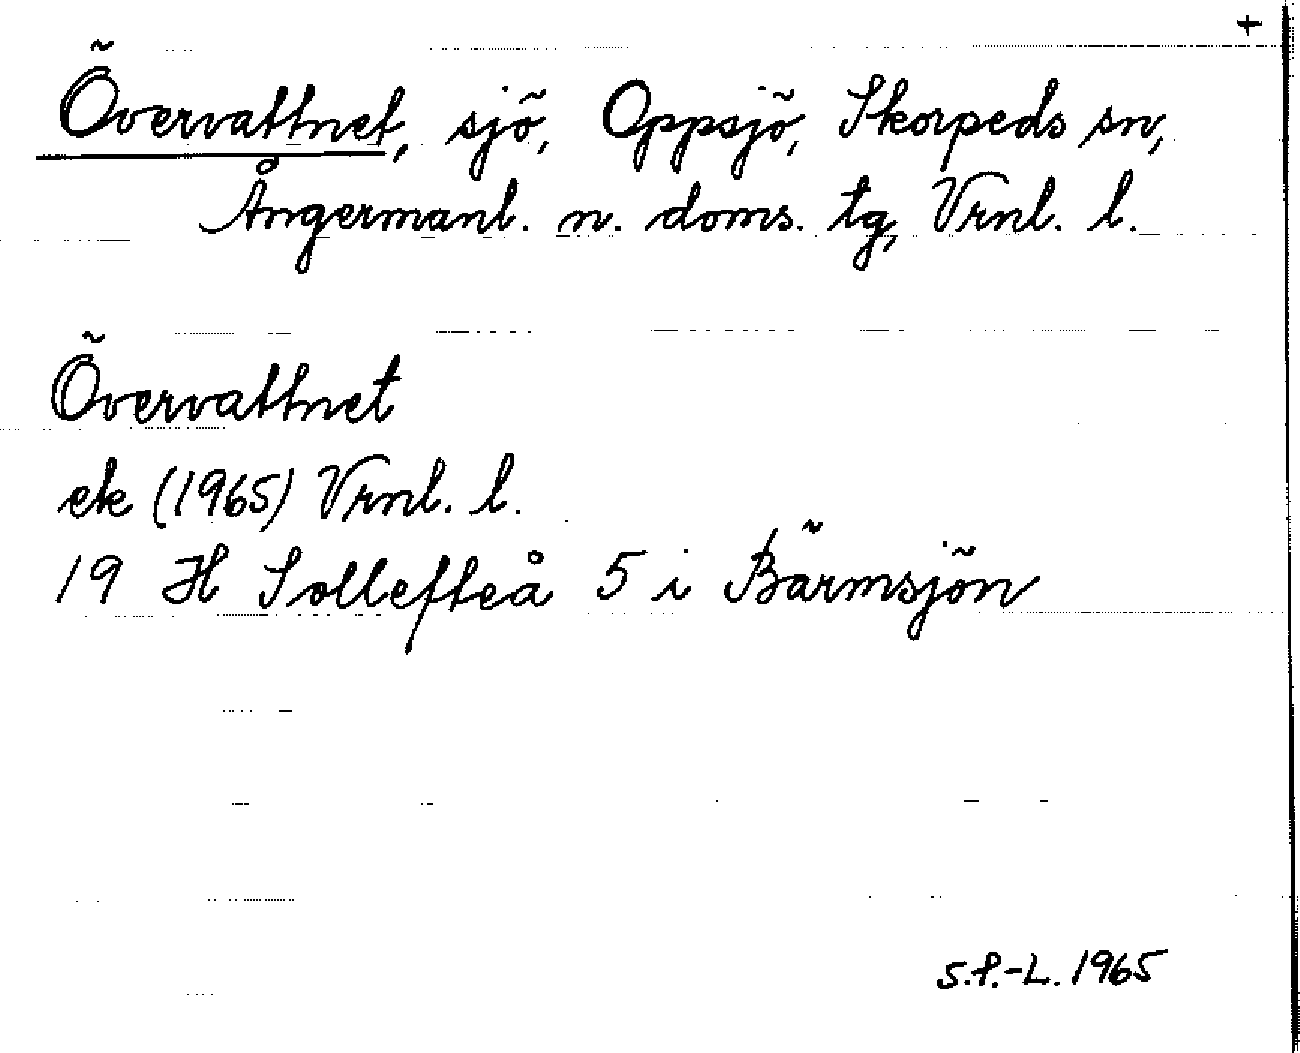 +
Övervattnet, sjö, Oppsjö, Skorpeds sn,
Ångermanl. n. doms. tg, Vrnl. l.
Övervattnet
ek (1965) Vrnl. l.
19 H Sollefteå 5 i Bärmsjön
S.P.-L. 1965